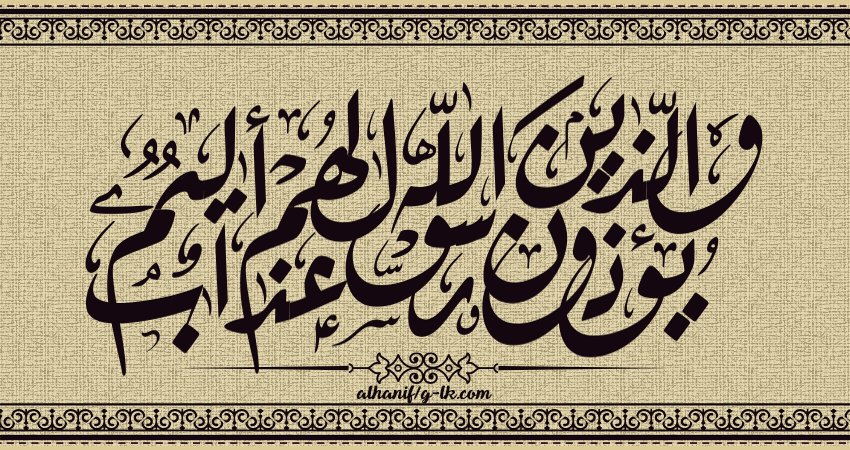 والذين يؤذون رسول الله لهم عذاب أليم
alhanif/g-lk.com